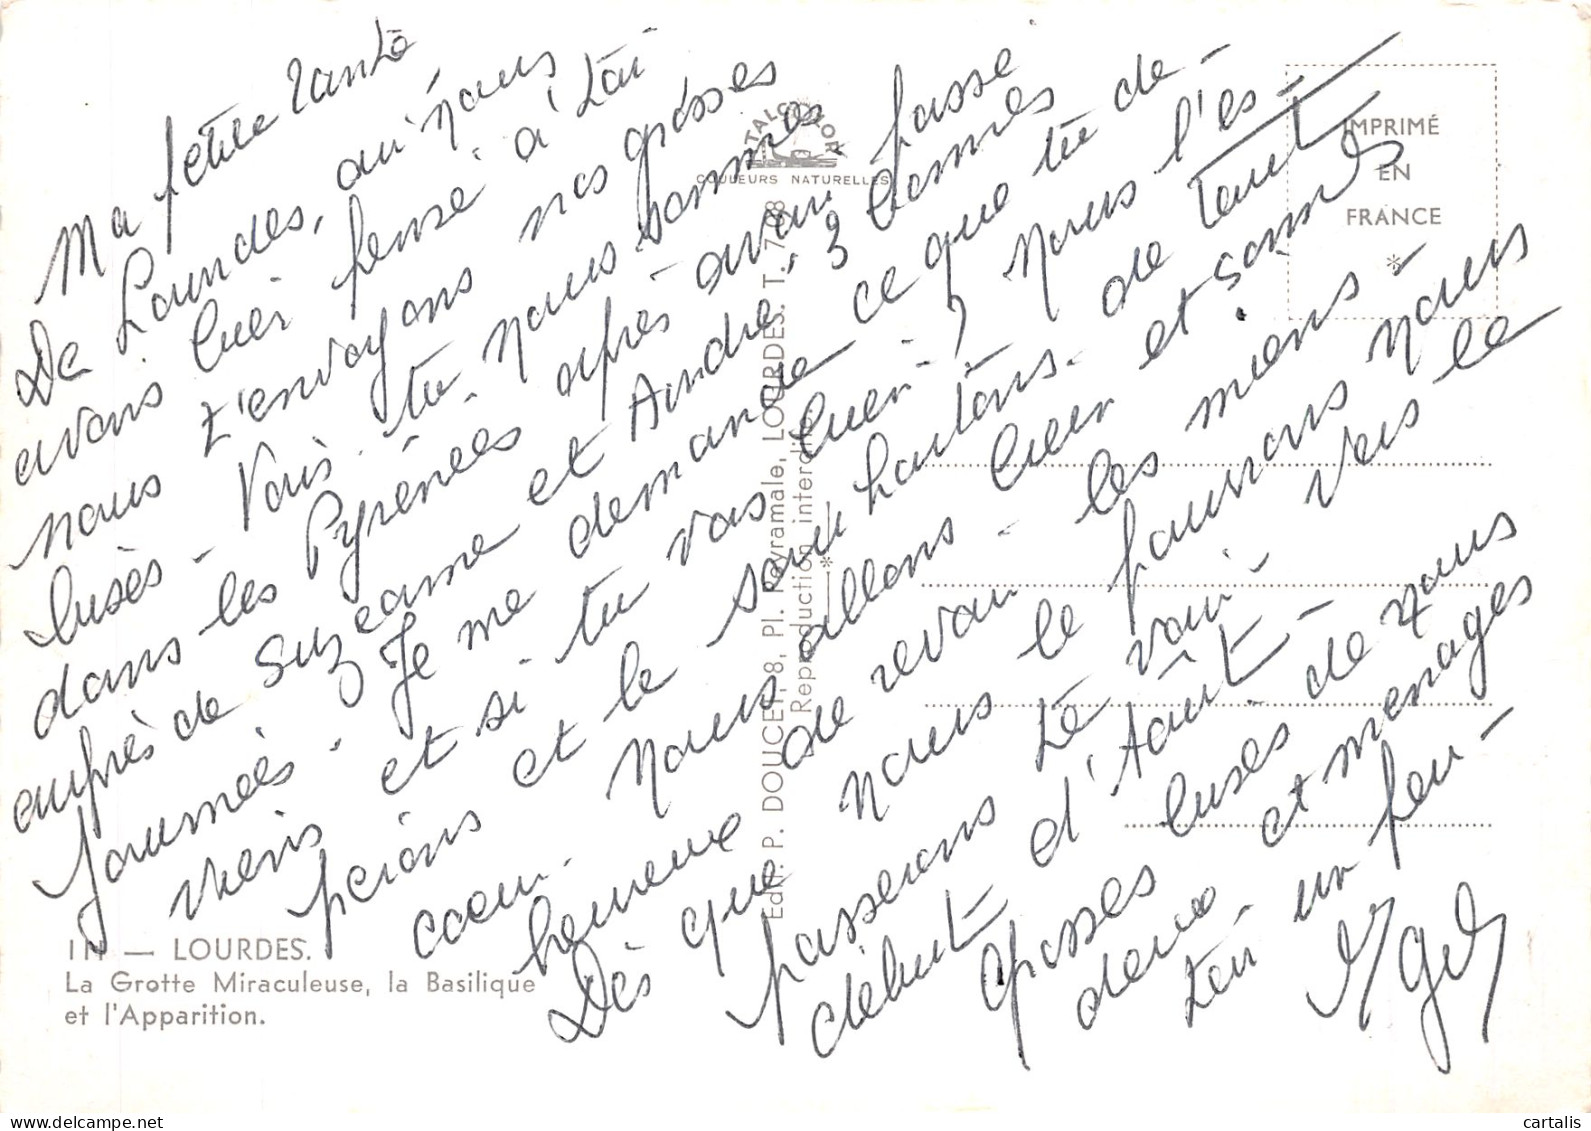 Ma petite Tante
De Lourdes, où nous
avons bien pensé à toi
nous t'envoyons nos grosses
bises - Vois-tu nous sommes
dans les Pyrénées après avoir passé
auprès de Suzanne et André, 3 bonnes
journées. Je me demande ce que tu de-
viens et si tu vas bien ? Nous l'es-
périons et le souhaitons de tout
coeur. Nous allons bien et sommes
heureux de revoir les miens -
Dès que nous le pourrons nous
passerons te voir vers le
début d'Août -
Grosses bises de nous
deux et ménages
toi un peu -
IMPRIMÉ
EN
FRANCE
*
COULEURS NATURELLES
Edit. P. DOUCET, 8, Pl. Peyramale, LOURDES. T. 7-08
Reproduction interdite
*
111 — LOURDES.
La Grotte Miraculeuse, la Basilique
et l'Apparition.
cartalis